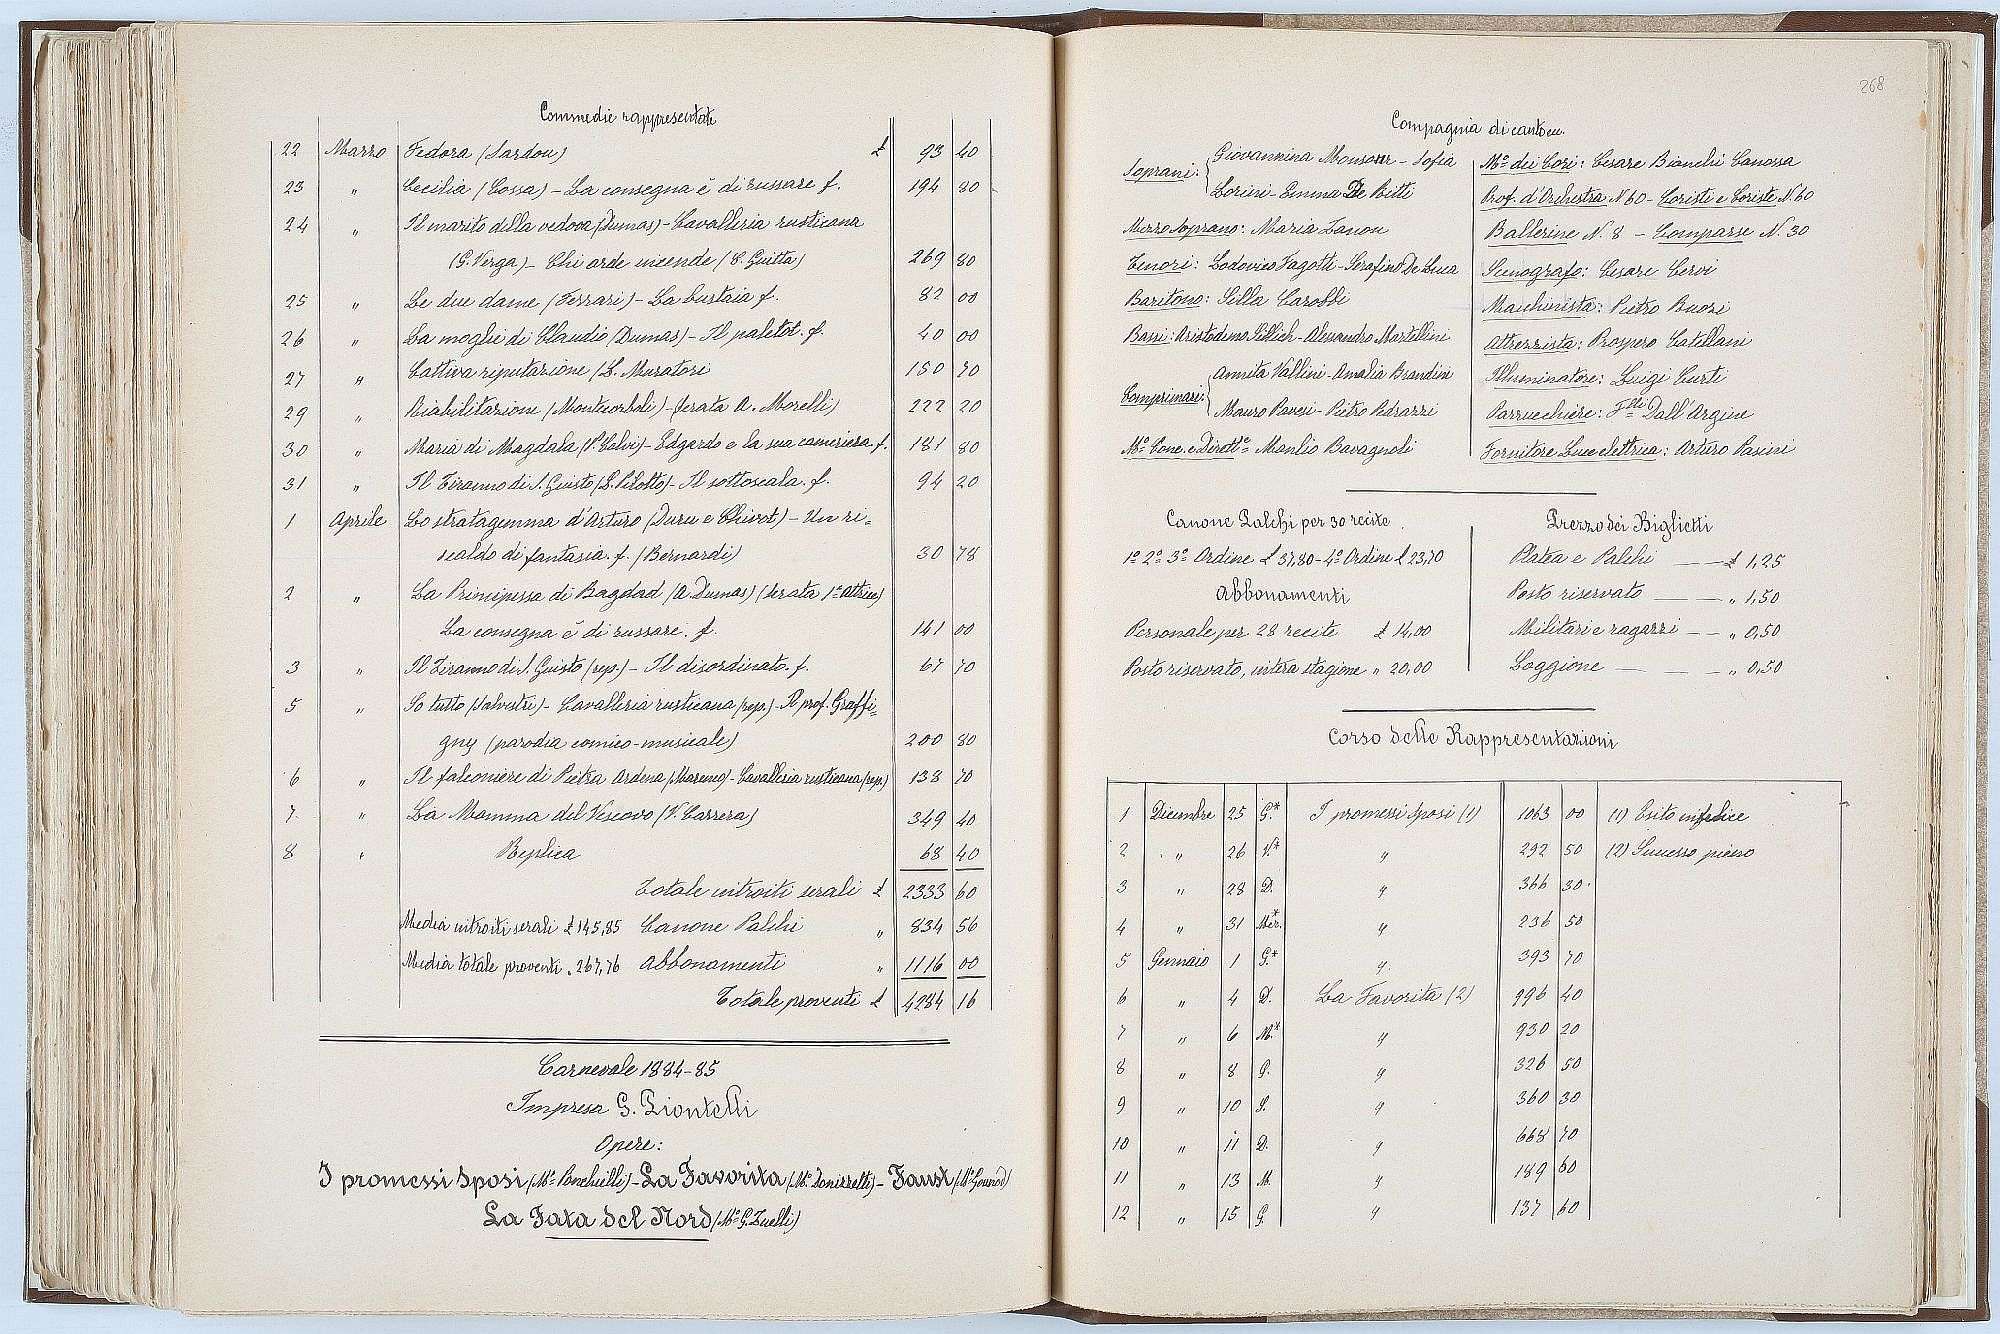 Commedie rappresentate
22 Marzo Fedora (Sardou) £ 93 40
23 " Cecilia (Cossa) - La consegna è di russare f. 194 80
24 " Il marito della vedova (Dumas) - Cavalleria rusticana
(G. Verga) - Chi arde incende (S. Guitta) 269 80
25 " Le due dame (Ferrari) - La bustaia f. 82 00
26 " La moglie di Claudio (Dumas) - Il paletot. f. 40 00
27 " Cattiva riputazione (L. Muratori 150 70
29 " Riabilitazione (Montecorboli) - (serata A. Morelli) 222 20
30 " Maria di Magdala (P. Calvi) - Edgardo e la sua cameriera. f. 181 80
31 " Il Tiranno di S. Giusto (L. Pilotto) - Il sottoscala. f. 94 20
1 Aprile Lo stratagemma d'Arturo (Duru e Chivot) - Un ri=
scaldo di fantasia. f. (Bernardi) 30 78
2 " La Principessa di Bagdad (A. Dumas) (serata 1ª Attrice)
La consegna è di russare. f. 141 00
3 " Il Tiranno di S. Giusto (rep.) - Il disordinato. f. 67 70
5 " So tutto (Salvestri) - Cavalleria rusticana (rep.) - Il prof. Graffi=
gny (parodia comico-musicale) 200 80
6 " Il falconiere di Pietra Ardena (Marenco) - Cavalleria rusticana (rep.) 138 70
7. " La Mamma del Vescovo (V. Carrera) 349 40
8 " Replica 68 40
Totale introiti serali £ 2333 60
Media introiti serali £ 145,85 Canone Palchi " 834 56
Media totale proventi " 267,76 Abbonamenti " 1116 00
Totale proventi £ 4284 16
Carnevale 1884-85
Impresa G. Piontelli
Opere:
I promessi Sposi (Mº Ponchielli) - La Favorita (Mº Donizzetti) - Faust (Mº Gounod)
La Fata del Nord (Mº G. Zuelli)
268
Compagnia di canto ecc.
Soprani: Giovannina Monsour - Sofia
Lorini - Emma De Bitti
Mezzo Soprano: Maria Zanon
Tenori: Lodovico Fagotti - Serafino De Luca
Baritono: Silla Carobbi
Bassi: Aristodemo Sillich - Alessandro Martellini
Comprimari: Annita Vallini - Amalia Brandini
Mauro Pavesi - Pietro Pedrazzi
Mº Conc. e Dirett.e Manlio Bavagnoli
Mº dei Cori: Cesare Bianchi Canossa
Prof. d'Orchestra N. 60 - Coristi e Coriste N. 60
Ballerine N. 8 - Comparse N. 30
Scenografo: Cesare Cervi
Macchinista: Pietro Buosi
Attrezzista: Prospero Catellani
Illuminatore: Luigi Curti
Parrucchiere: F.lli Dall'Argine
Fornitore Luce elettrica: Arturo Pasini
Canone Palchi per 30 recite
1º 2º 3º Ordine £ 37,80 - 4º Ordine £ 23,70
Abbonamenti
Personale per 28 recite £ 14,00
Posto riservato, intera stagione " 20,00
Prezzo dei Biglietti
Platea e Palchi — — £ 1,25
Posto riservato — — " 1,50
Militari e ragazzi — — " 0,50
Loggione — — — " 0,50
Corso delle Rappresentazioni
1 Dicembre 25 G.* I promessi Sposi (1) 1063 00 (1) Esito infelice
2 " 26 V.* " 292 50 (2) Successo pieno
3 " 28 D. " 366 30
4 " 31 Mer.* " 236 50
5 Gennaio 1 G.* " 393 70
6 " 4 D. La Favorita (2) 996 40
7 " 6 M.* " 930 20
8 " 8 G. " 326 50
9 " 10 S. " 360 30
10 " 11 D. " 668 70
11 " 13 M. " 189 60
12 " 15 G. " 137 60